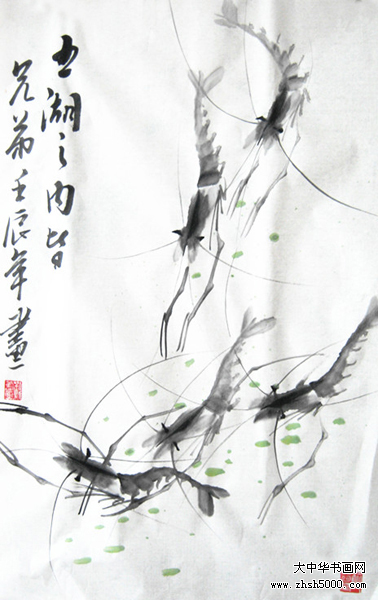 五湖之内皆
兄弟壬辰年画
大中华书画网
www.zhsh5000.com